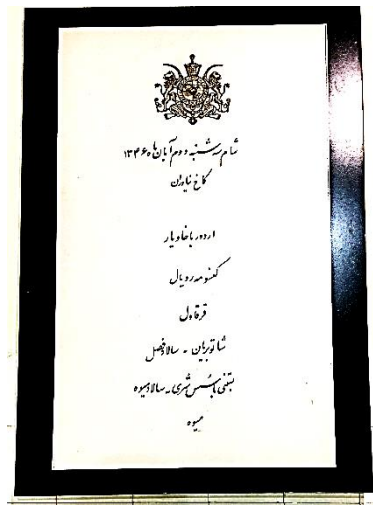 شام سه‌شنبه دوم آبان ماه ۱۳۴۶
کاخ نیاوران
اردور با خاویار
کنسومه رویال
قرقاول
شاتوبریان - سالاد فصل
بستنی با سس شری - سالاد میوه
میوه